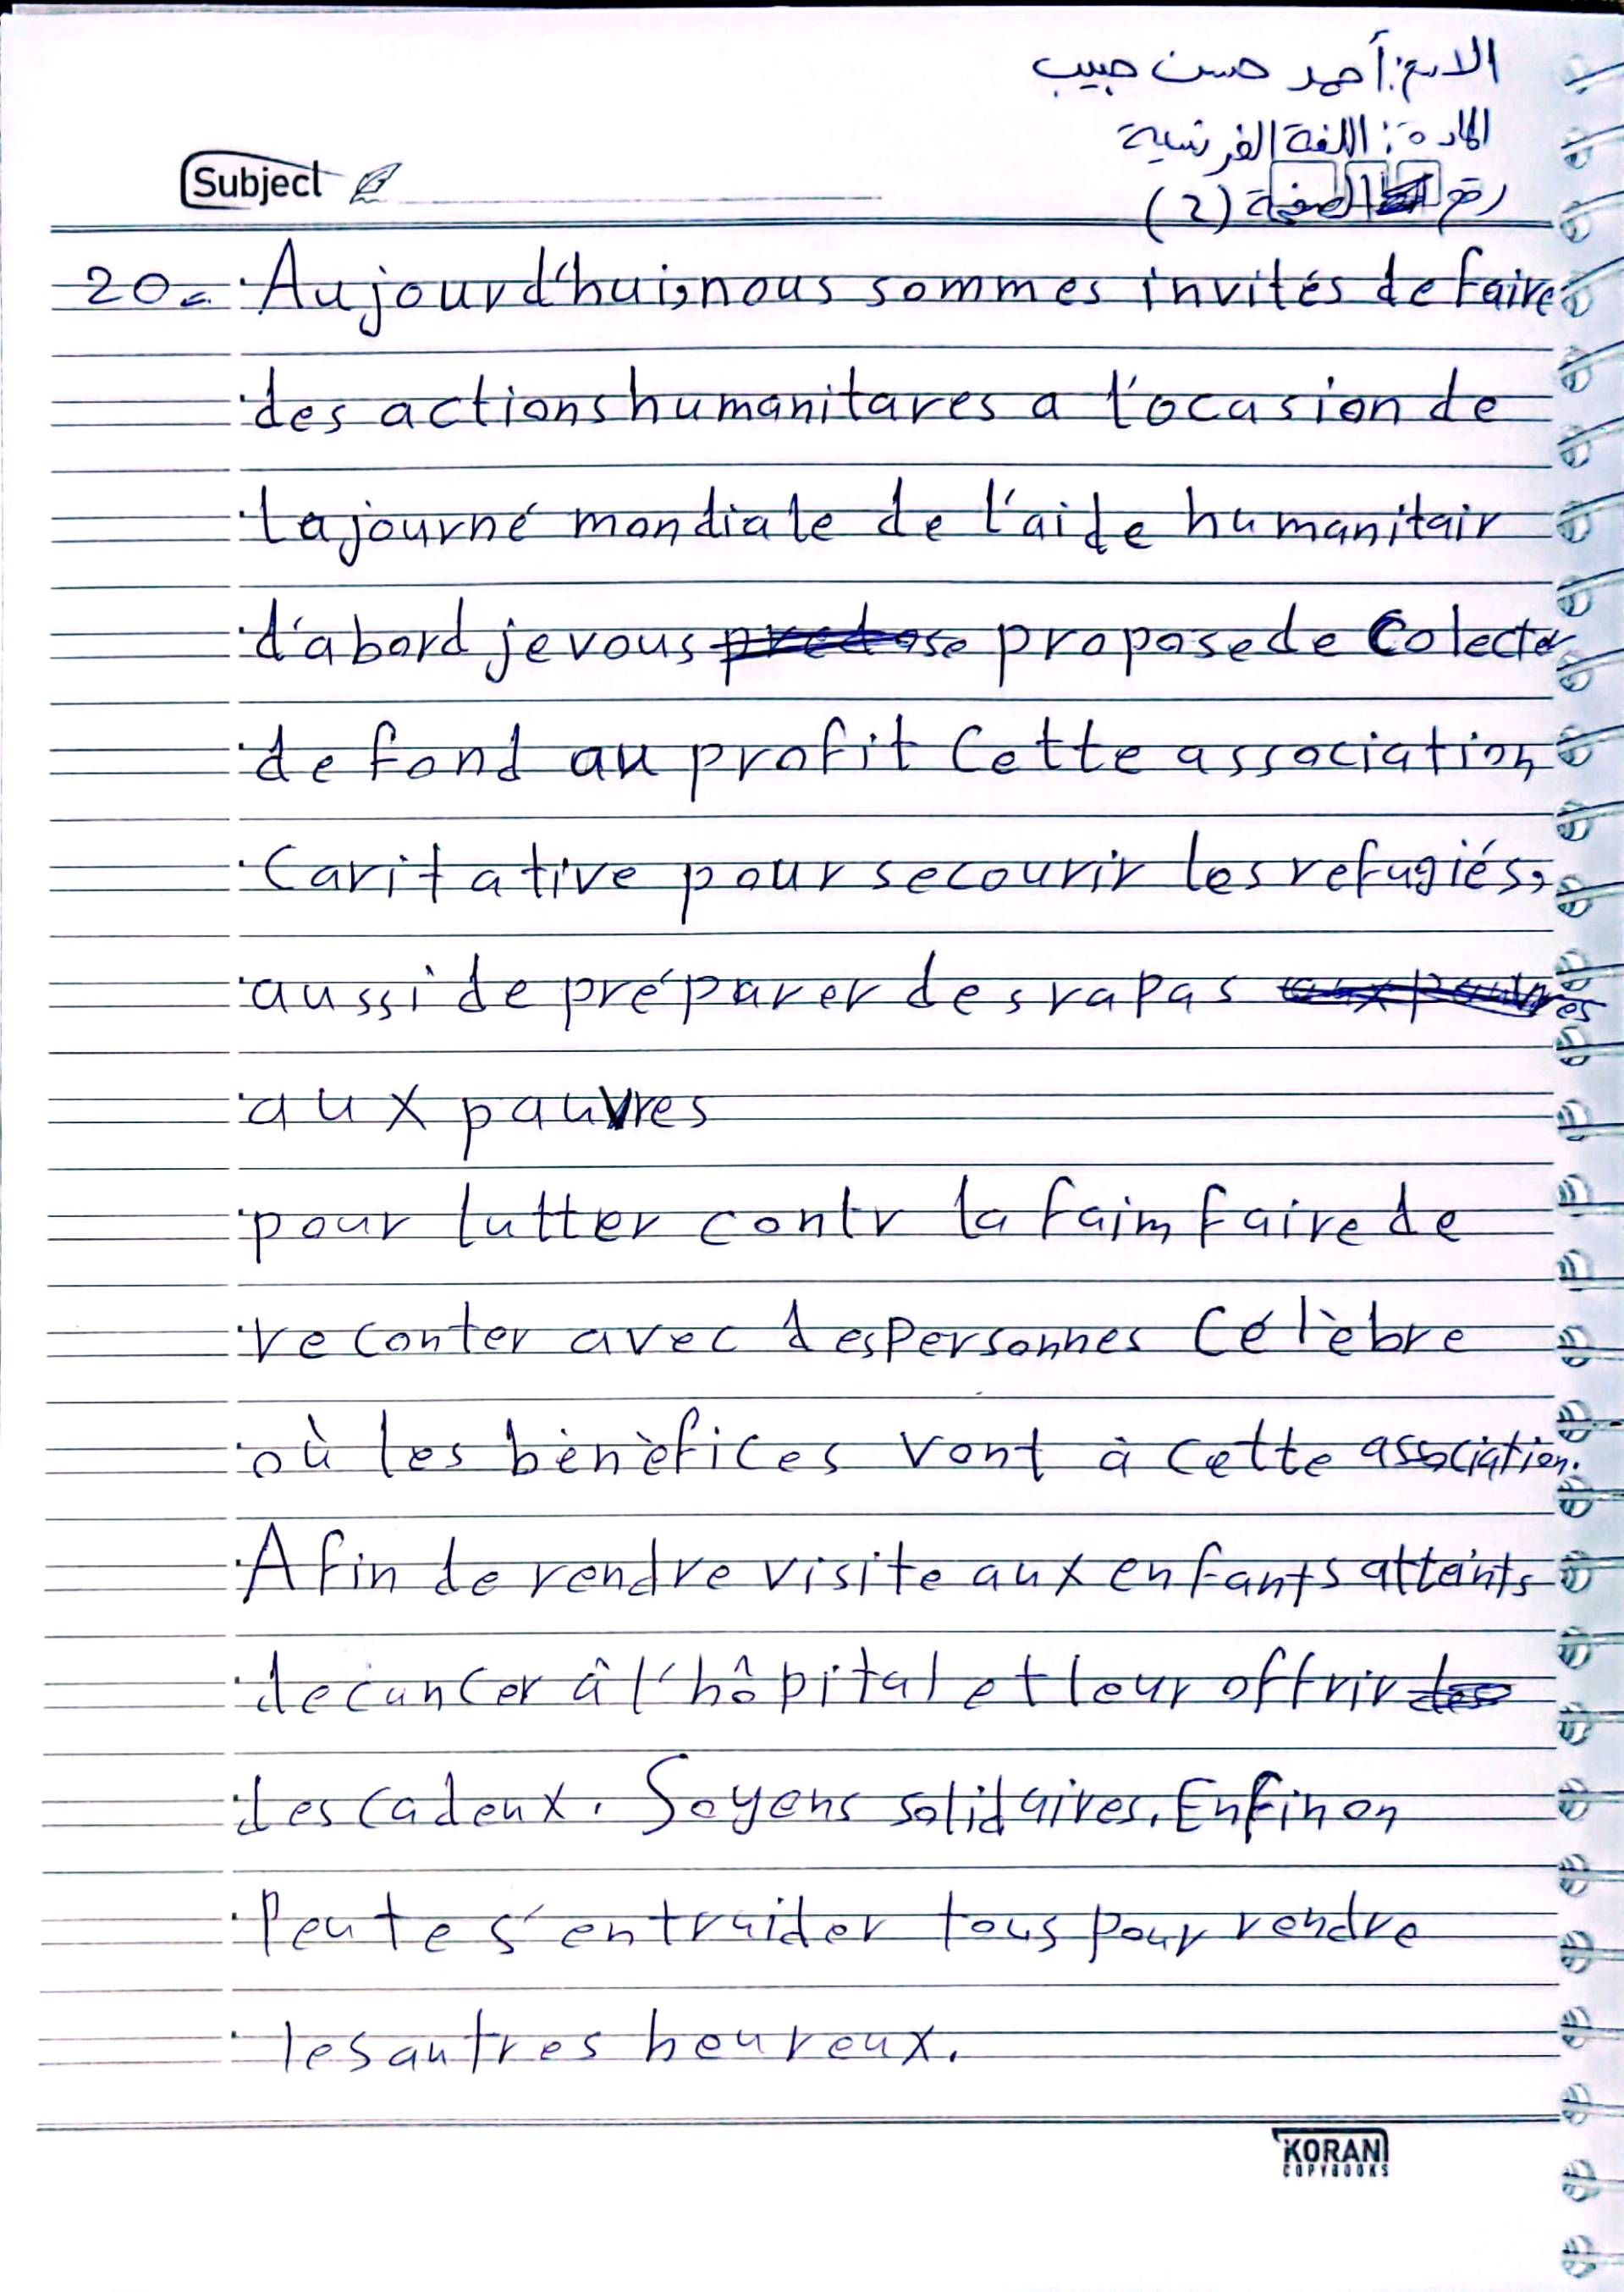 الاسم: أحمد حسن حبيب
المادة: اللغة الفرنسية
رقم الصفحة (2)
Subject
20- Aujourd'hui, nous sommes invités de faire
des actions humanitares a l'ocasion de
la journé mondiale de l'aide humanitair
d'abord je vous propose de Colecter
de fond au profit Cette association
Caritative pour secourir les refugiés,
aussi de préparer des rapas
aux pauvres
pour lutter contr la faim faire de
reconter avec des personnes Célèbre
où les bènèfices vont à cette association.
Afin de rendre visite aux enfants atteints
de cancer â l'hôpital et leur offrir
des Cadeux. Soyons solidaires. Enfin on
Peute s'entraider tous pour rendre
les autres heureux.
KORAN
COPYBOOKS